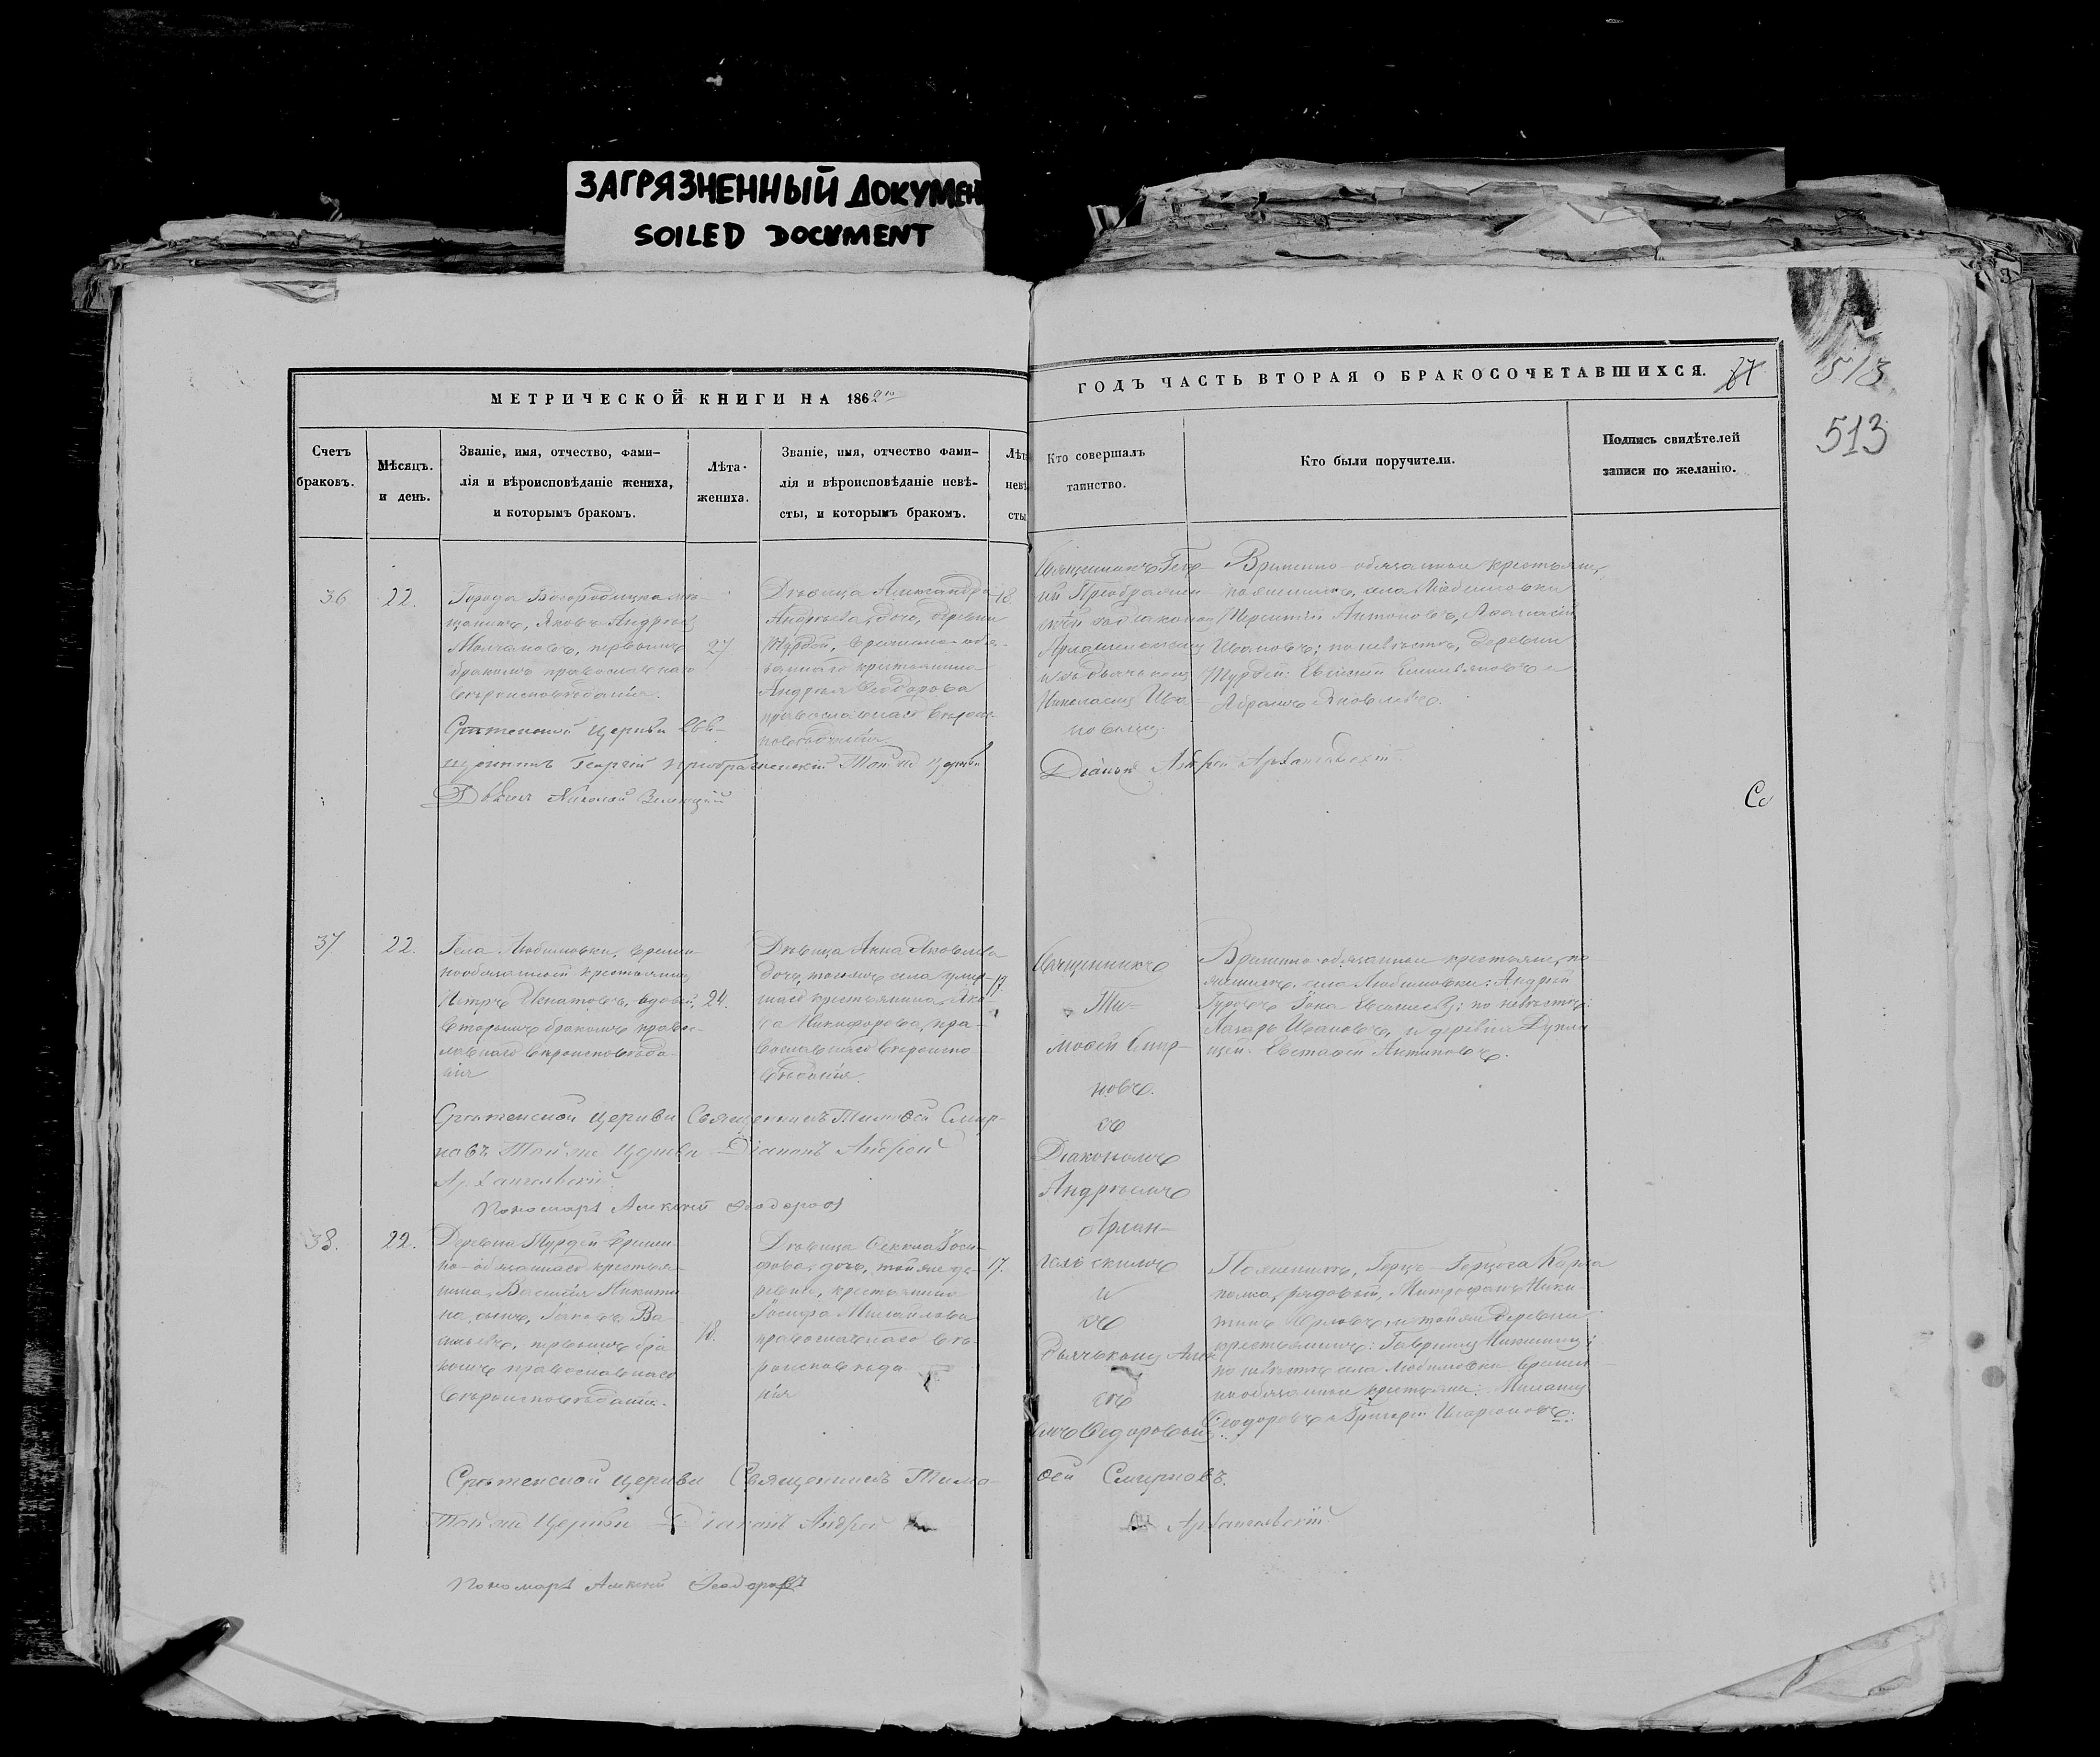 ЗАГРЯЗНЕННЫЙ ДОКУМЕН
SOILED DOCUMENT
МЕТРИЧЕСКОЙ КНИГИ НА 1862
ГОДЪ ЧАСТЬ ВТОРАЯ О БРАКОСОЧЕТАВШИХСЯ.
513
513
Счетъ
браковъ.
Мѣсяцъ.
и день.
Званіе, имя, отчество, фами-
лія и вѣроисповѣданіе жениха,
и которымъ бракомъ.
Лѣта
жениха.
Званіе, имя, отчество фами-
лія и вѣроисповѣданіе невѣ-
сты, и которымъ бракомъ.
Лѣт
невѣ
сты
Кто совершалъ
таинство.
Кто были поручители.
Подпись свидѣтелей
записи по желанію.
36
22.
Города Богородицка мѣ-
щанинъ, Яковъ Андреев
Молчановъ, первымъ
бракомъ православнаго
вѣроисповѣданія.
27
Дѣвица Александра
Андреева дочь, деревни
Турдей, временно-обя-
заннаго крестьянина
Андрея Ѳеодорова
православнаго вѣроис-
повѣданія
18.
Священникъ Геор-
гій Преображен-
Николаемъ Ива-
новымъ.
Временно-обязанные крестьяне,
по женихѣ, села Любимовки
Терентій Антоновъ, Аѳанасій
Ивановъ; по невѣстѣ, деревни
Турдей: Евсевій Емельяновъ и
Абрамъ Яковлевъ.
Срѣтенской Церкви Свя-
щенникъ Георгій Преображенскій Той же Церкви
Діаконъ Андрей Архангельскій
Дьячекъ Николай
37
22.
Села Любимовки, времен-
нообязанный крестьянинъ
Петръ Игнатовъ, вдовый,
вторымъ бракомъ правос-
лавнаго вѣроисповѣда-
нія
24.
Дѣвица Анна Яковлева
дочь, тогожъ села умер-
шаго крестьянина Яко-
ва Никифорова, пра-
вославнаго вѣроиспо-
вѣданія.
17
Священникъ
Ти-
моѳей Смир-
новъ.
съ
Діакономъ
Андреемъ
Архан-
гельскимъ
и
съ
Временно-обязанные крестьяне, по
женихѣ, села Любимовки: Андрей
Гуровъ Ѳока Евсигнеевъ; по невѣстѣ:
Лазарь Ивановъ, и деревни
Евстафій Антиповъ.
Срѣтенской Церкви Священникъ Тимоѳей Смир-
новъ Той же Церкви Діаконъ Андрей
Архангельскій
Пономарь Алексей Ѳеодоровъ
38.
22.
Деревни Турдей времен-
но-обязаннаго крестья-
нина, Василія Никити-
на, сынъ, Яковъ Ва-
сильевъ, первымъ бра-
комъ православнаго
вѣроисповѣданія.
18.
Дѣвица Ѳекла Іоси-
фова, дочь, той же де-
ревни, крестьянина
Іосифа Михайлова
православнаго вѣ-
роисповѣда-
нія
17.
По женихѣ, Герцъ-Герцога Карла
полка, рядовый, Митрофанъ Ники-
тинъ Орловъ, и той же деревни
крестьянинъ: Гавриилъ Никитинъ;
по невѣстѣ села Любимовки, времен-
нообязанные крестьяне:
Ѳеодоровъ и Григорій Иларіоновъ.
Срѣтенской Церкви Священникъ Тимо-
ѳей Смирновъ.
Той же Церкви Діаконъ Андрей
Архангельскій
Пономарь Алексей Ѳеодоровъ